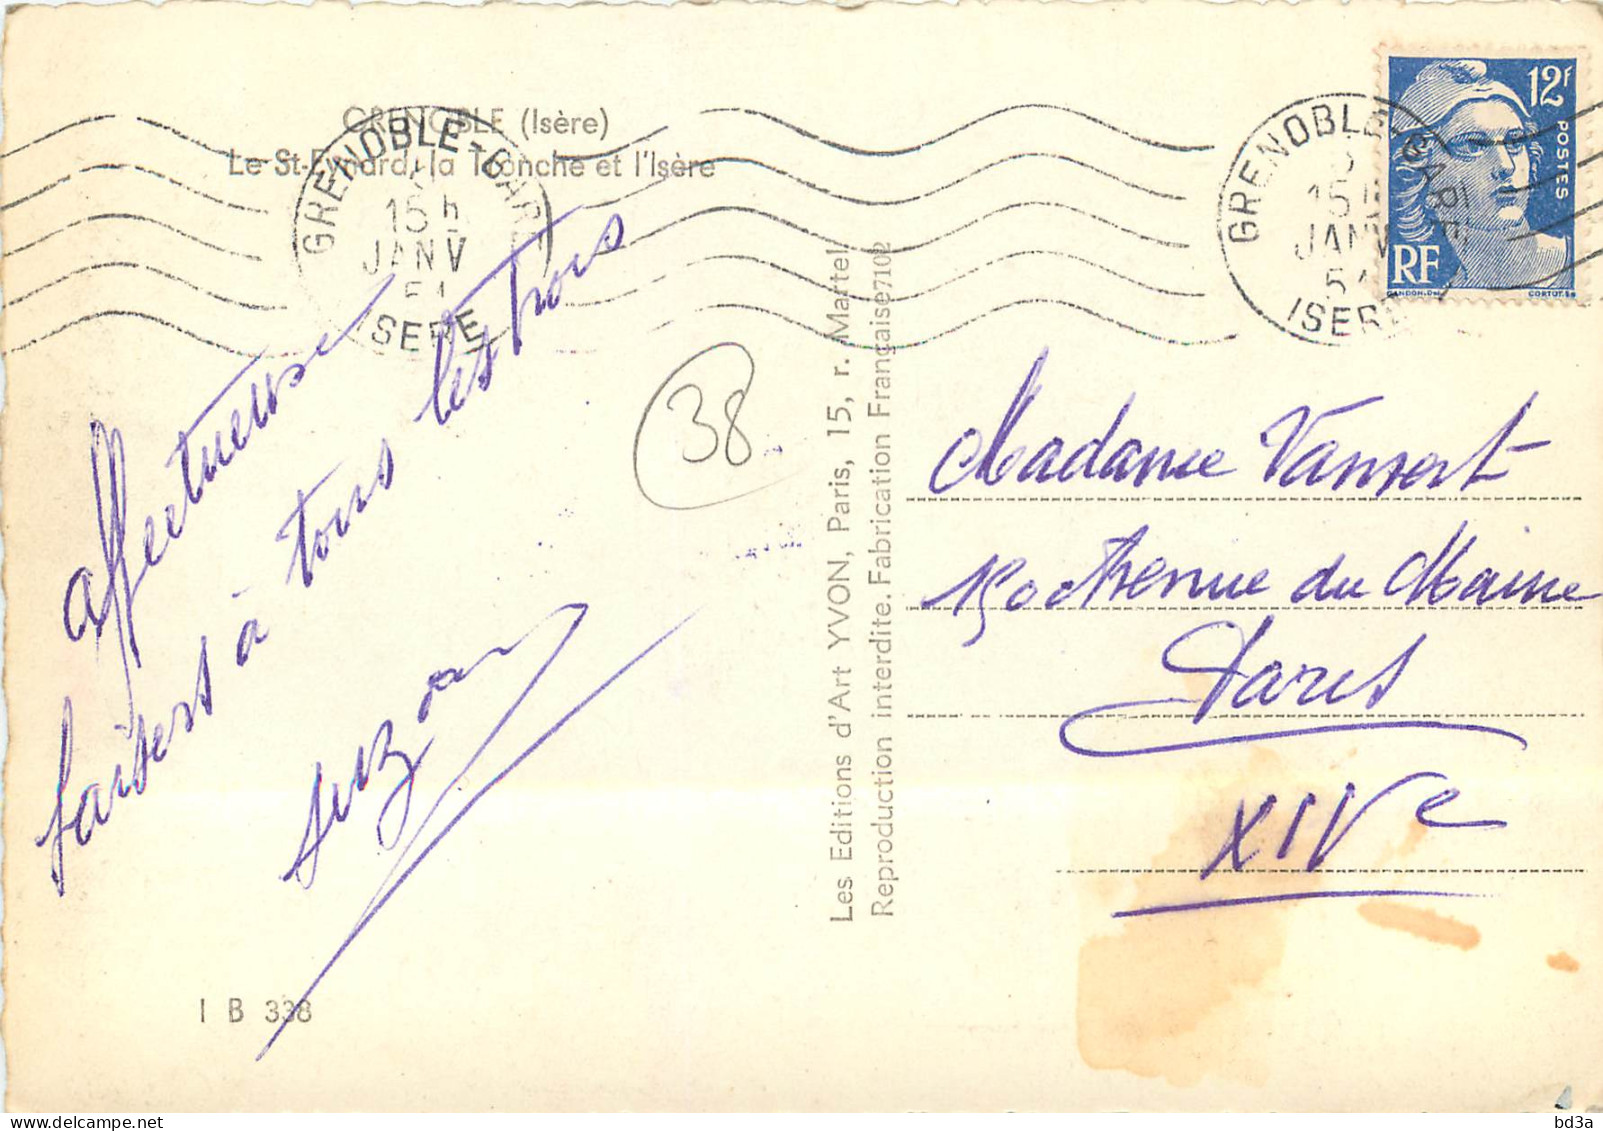 GRENOBLE (Isère)
Le St-Eynard, la Tronche et l'Isère
GRENOBLE-GARE
15 h
JANV
51
ISERE
GRENOBLE-GARE
15
JANV
51
ISERE
12F
POSTES
RF
GANDON.Del.
CORTOT.Sc
affectueuse
baisers à tous les trois
Suzan
38
Les Editions d'Art YVON, Paris, 15, r. Martel
Reproduction interdite. Fabrication Française 7102
Madame
150 Avenue du Maine
Paris
XIVe
I B 338
bd3a